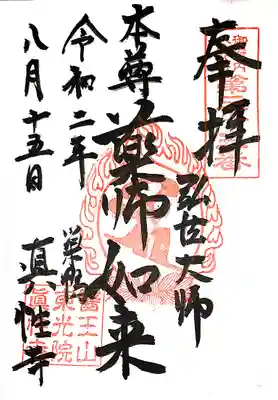 奉拝
弘法大師
本尊 薬師如来
令和二年
八月十五日
巣鴨
真性寺
醫王山
東光院
眞性寺